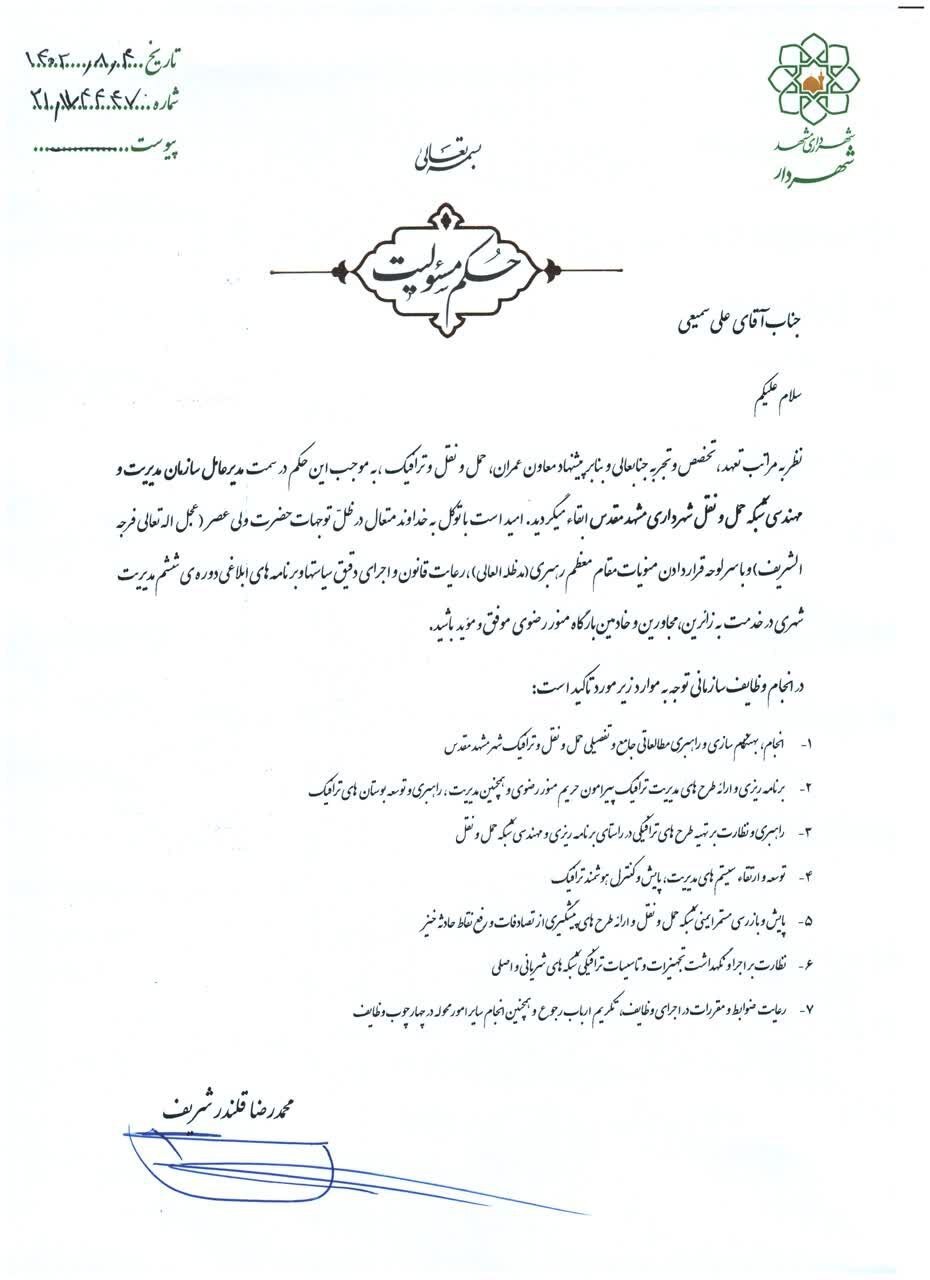 شهرداری مشهد
شهردار
تاریخ ۱۴۰۲/۸/۴
شماره
پیوست
بسمه تعالی
حکم مسئولیت
جناب آقای علی سمیعی
سلام علیکم
نظر به مراتب تعهد، تخصص و تجربه جنابعالی و بنابر پیشنهاد معاون عمران، حمل و نقل و ترافیک ،به موجب این حکم در سمت مدیرعامل سازمان مدیریت و
مهندسی شبکه حمل و نقل شهرداری مشهد مقدس ابقاء میگردید. امید است با توکل به خداوند متعال در ظلّ توجهات حضرت ولی عصر (عجل اله تعالی فرجه
الشریف) و با سرلوحه قرار دادن منویات مقام معظم رهبری (مدظله العالی)، رعایت قانون و اجرای دقیق سیاستها و برنامه های ابلاغی دوره ی ششم مدیریت
شهری در خدمت به زائرین، مجاورین و خادمین بارگاه منور رضوی موفق و مؤید باشید.
در انجام وظایف سازمانی توجه به موارد زیر مورد تاکید است:
۱- انجام، بهنگام سازی و راهبری مطالعاتی جامع و تفصیلی حمل و نقل و ترافیک شهر مشهد مقدس
۲- برنامه ریزی و ارائه طرح های مدیریت ترافیک پیرامون حریم منور رضوی و همچنین مدیریت، راهبری و توسعه بوستان های ترافیک
۳- راهبری و نظارت بر تهیه طرح های ترافیکی در راستای برنامه ریزی و مهندسی شبکه حمل و نقل
۴- توسعه و ارتقاء سیستم های مدیریت، پایش و کنترل هوشمند ترافیک
۵- پایش و بازرسی مستمر ایمنی شبکه حمل و نقل و ارائه طرح های پیشگیری از تصادفات و رفع نقاط حادثه خیز
۶- نظارت بر اجرا و نگهداشت تجهیزات و تاسیسات ترافیکی شبکه های شریانی و اصلی
۷- رعایت ضوابط و مقررات در اجرای وظایف، تکریم ارباب رجوع و همچنین انجام سایر امور محوله در چهارچوب وظایف
محمدرضا قلندر شریف